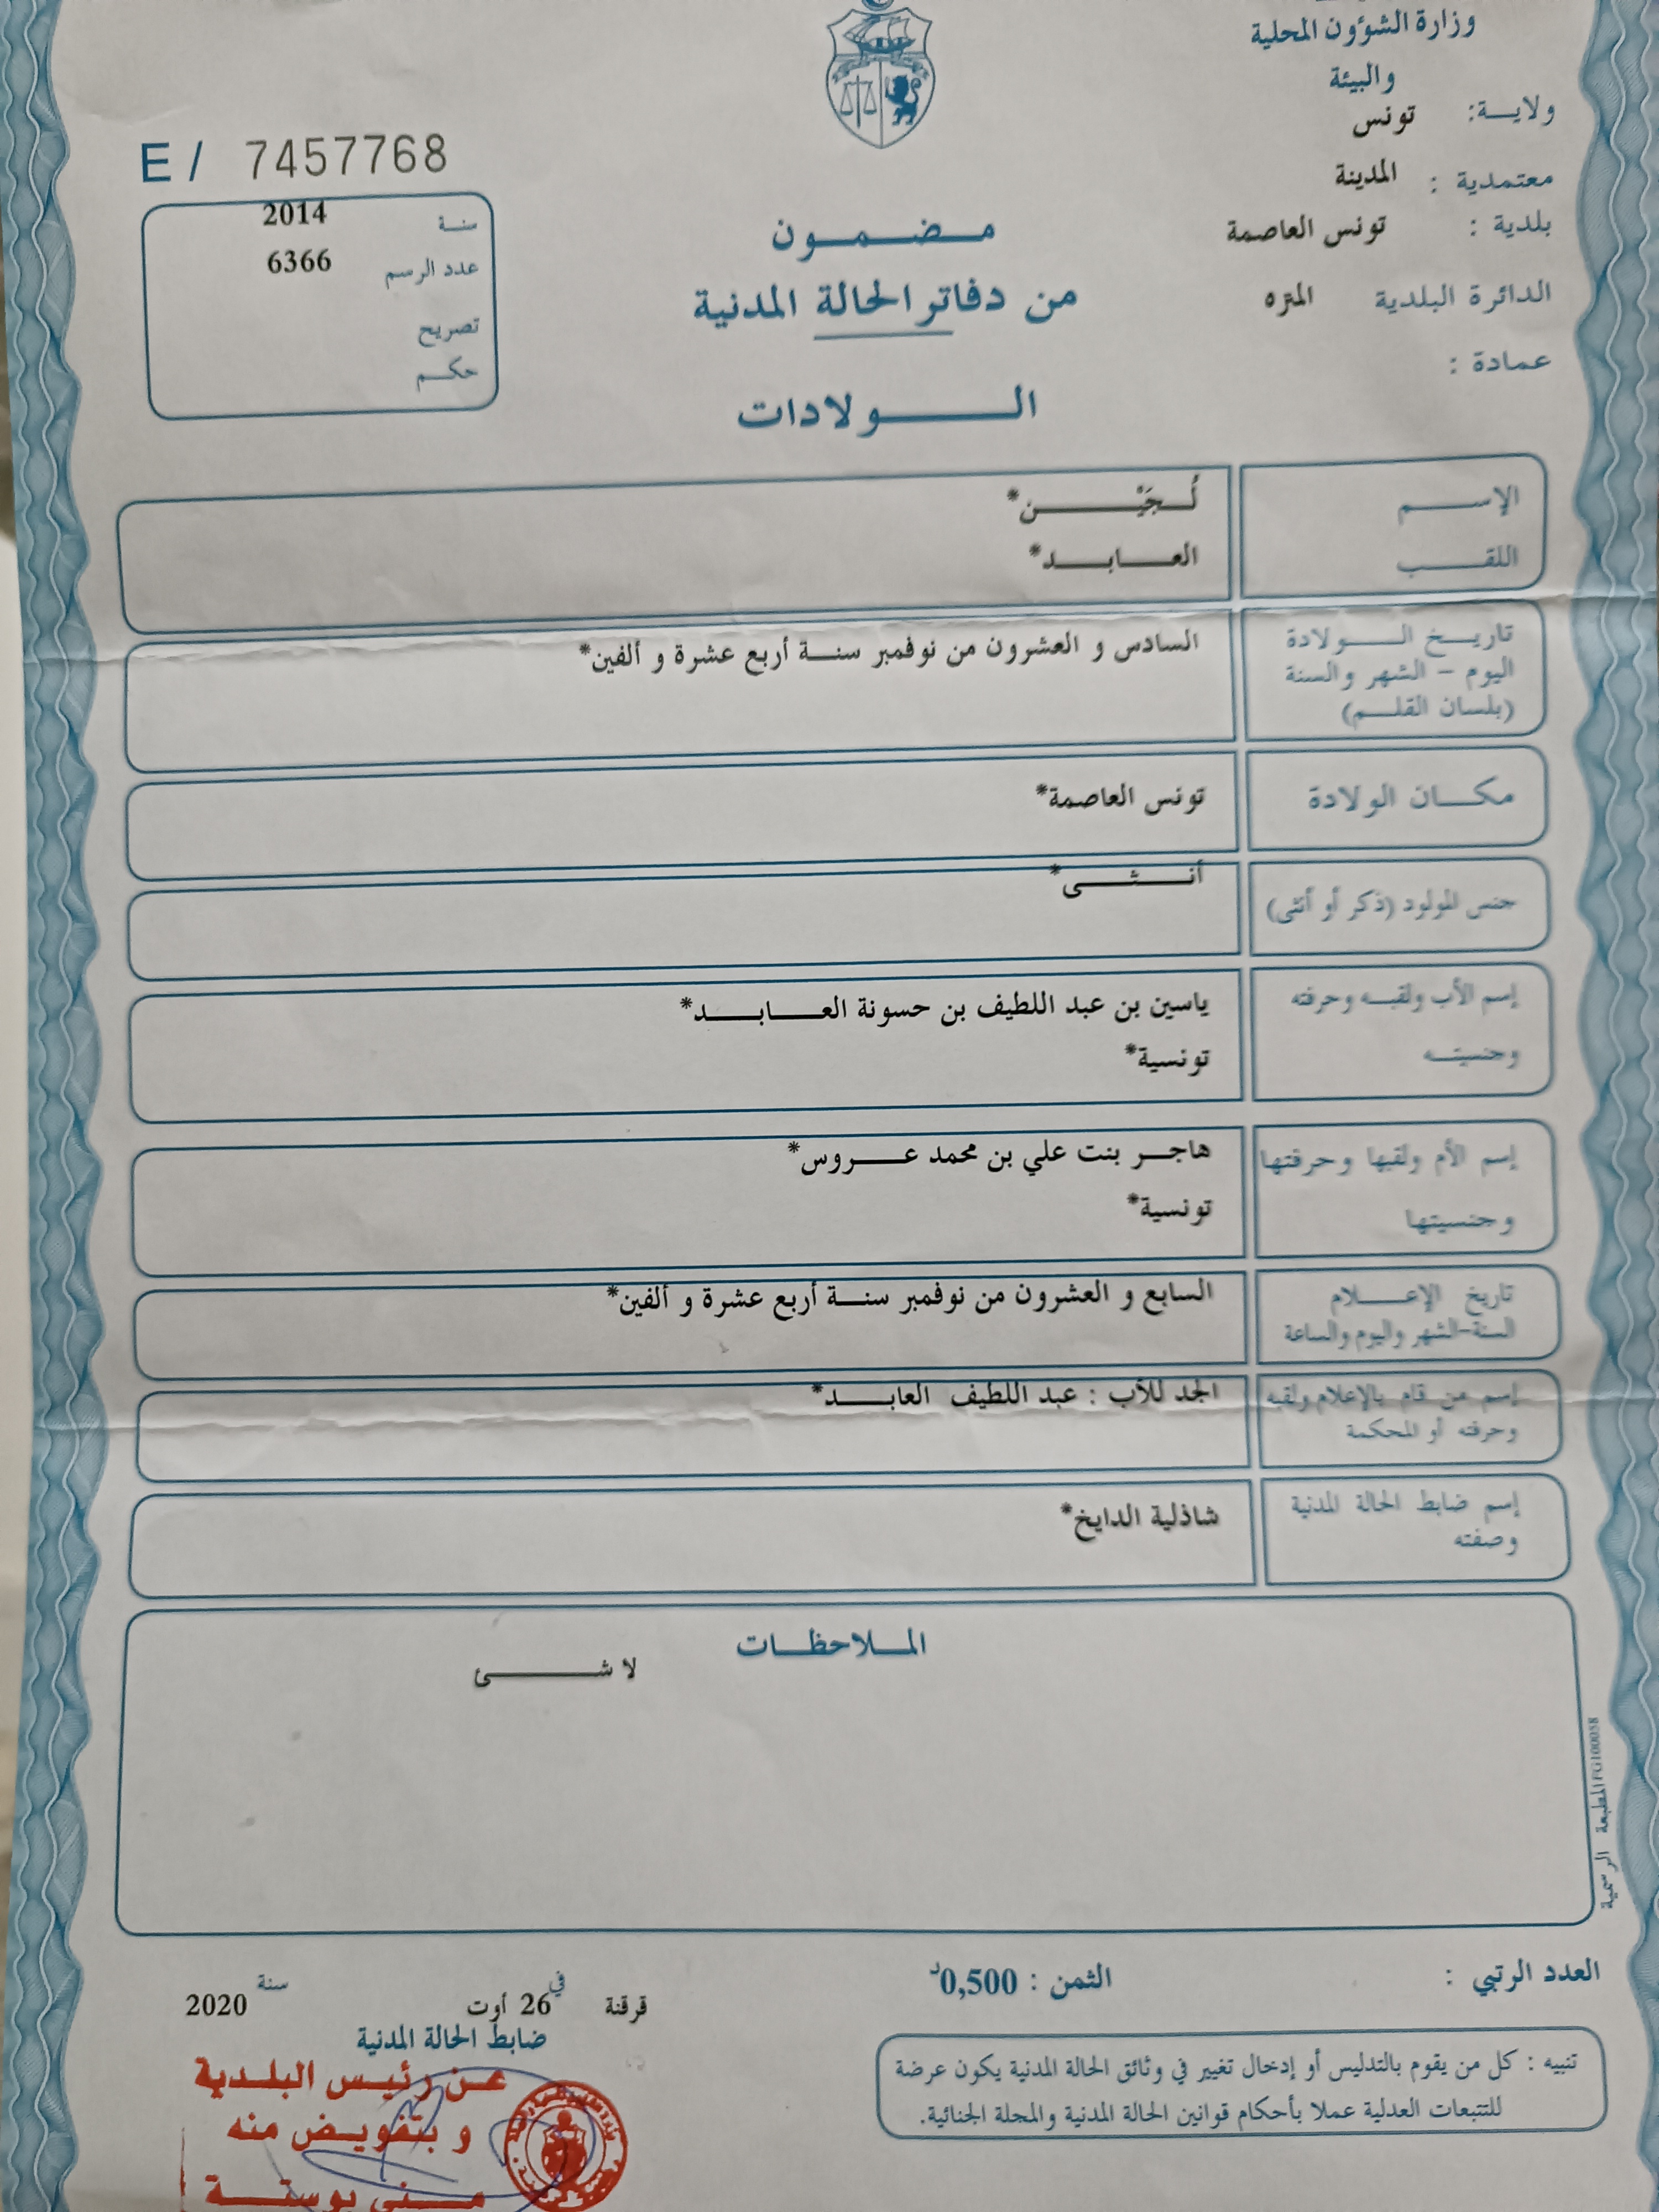 وزارة الشؤون المحلية
والبيئة
ولاية: تونس
معتمدية : المدينة
بلدية : تونس العاصمة
الدائرة البلدية المتره
عمادة :
E / 7457768
سنة 2014
عدد الرسم 6366
تصريح
حكم
مضمون
من دفاتر الحالة المدنية
الولادات
الإسم لُجَيْن*
اللقب العابد*
تاريخ الولادة السادس و العشرون من نوفمبر سنة أربع عشرة و ألفين*
اليوم - الشهر والسنة
(بلسان القلم)
مكان الولادة تونس العاصمة*
جنس المولود (ذكر أو أنثى) أنثى*
إسم الأب ولقبه وحرفته ياسين بن عبد اللطيف بن حسونة العابد*
وجنسيته تونسية*
إسم الأم ولقبها وحرفتها هاجر بنت علي بن محمد عروس*
وجنسيتها تونسية*
تاريخ الإعلام السابع و العشرون من نوفمبر سنة أربع عشرة و ألفين*
السنة-الشهر واليوم والساعة
إسم من قام بالإعلام ولقبه الجد للأب : عبد اللطيف العابد*
وحرفته أو المحكمة
إسم ضابط الحالة المدنية شاذلية الدايخ*
وصفته
الملاحظات
لا شئ
المطبعة الرسمية FG100058
العدد الرتبي :
الثمن : 0,500د
قرقنة في 26 أوت سنة 2020
ضابط الحالة المدنية
عن رئيس البلدية
و بتفويض منه
منى بوستة
تنبيه : كل من يقوم بالتدليس أو إدخال تغيير في وثائق الحالة المدنية يكون عرضة
للتتبعات العدلية عملا بأحكام قوانين الحالة المدنية والمجلة الجنائية.